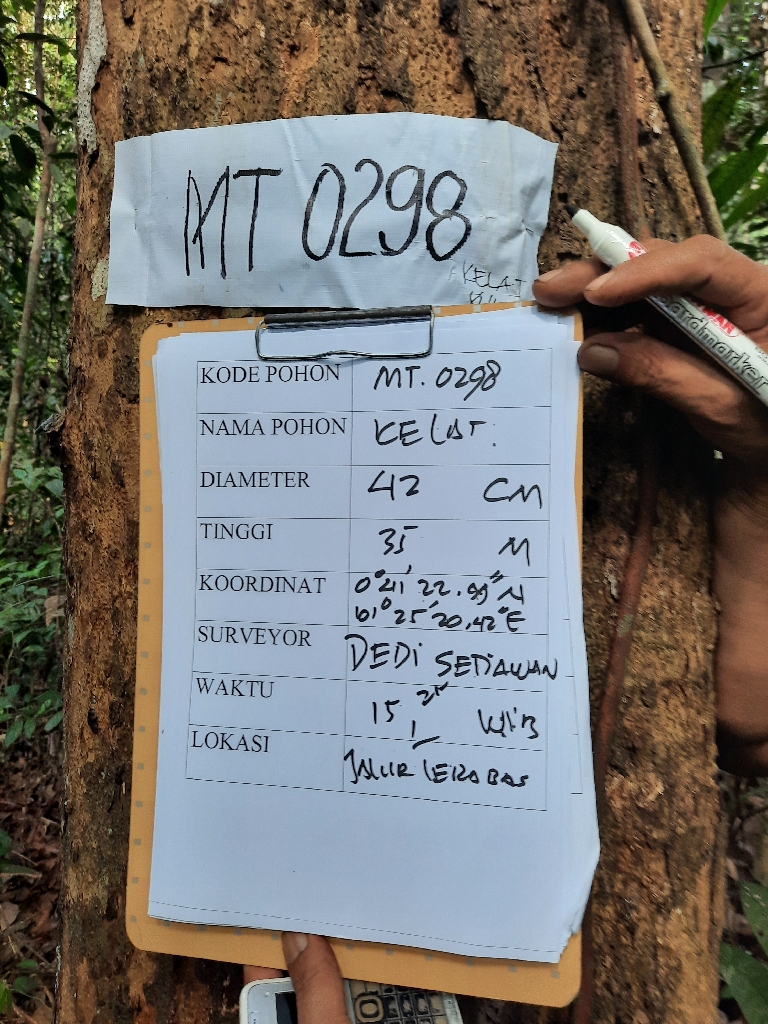 MT 0298
KELAT
KODE POHON MT. 0298
NAMA POHON KELAT.
DIAMETER 42 CM
TINGGI 35 M
KOORDINAT 0° 41' 22.99" N
61° 25' 20,42" E
SURVEYOR DEDI SETIAWAN
WAKTU 15, 25 WIB
LOKASI JALUR
boardmarker